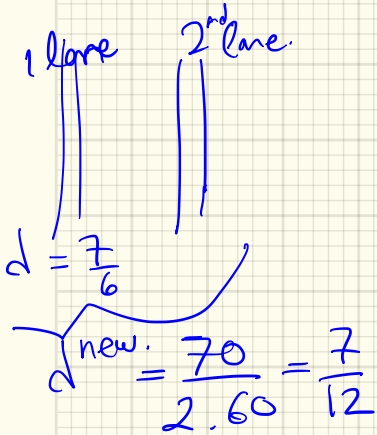 1 lane 2nd lane.
d = 7/6
d new. = 70/2.60 = 7/12